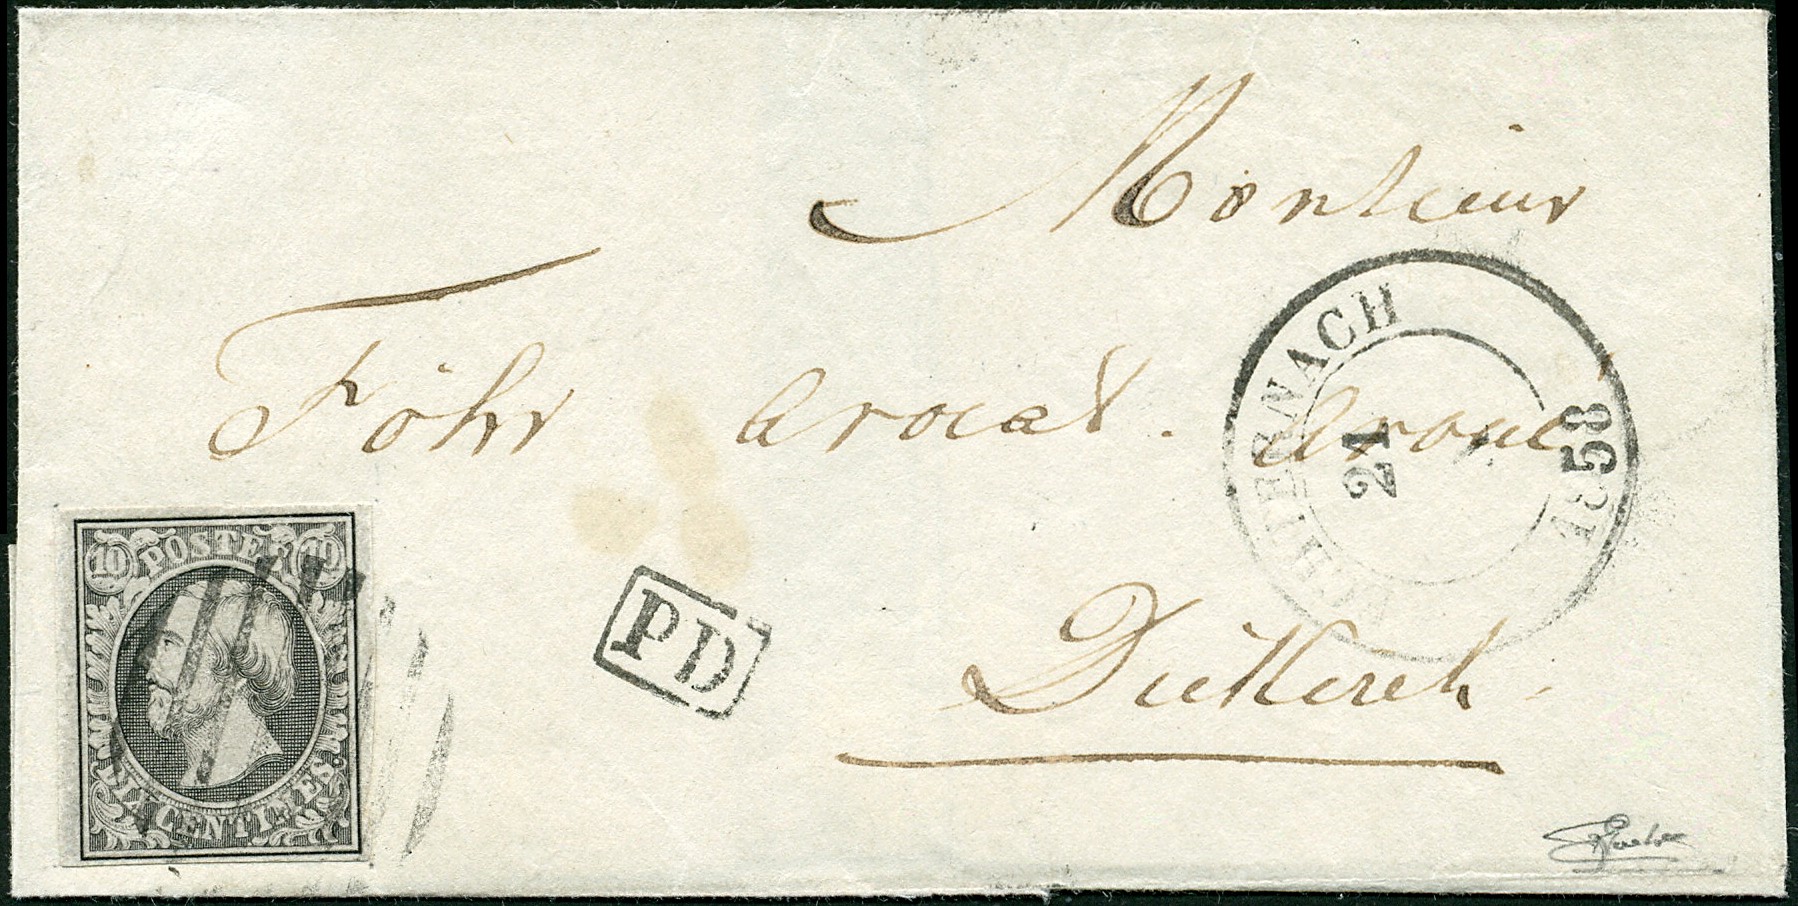 Monsieur
Föhr avocat. avoué
Diekirch.
ECHTERNACH
21
1858
PD
10 POSTES 10
DIX CENTIMES.